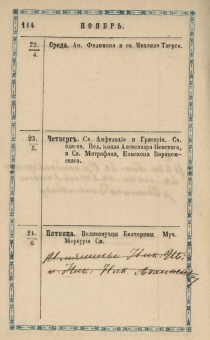 114 НОЯБРЬ.
22.
4.
Среда. Ап. Филимона и св. Михаила Тверск.
23.
5.
Четвергъ. Св. Амфилохія и Григорія. Св.
Вел. князя Александра Невскаго,
и Св. Митрофана, Епископа Воронеж-
скаго.
24.
6
Пятница. Великомученицы Екатерины. Муч.
Меркурія См.
Ник.
и Ник. Ник.